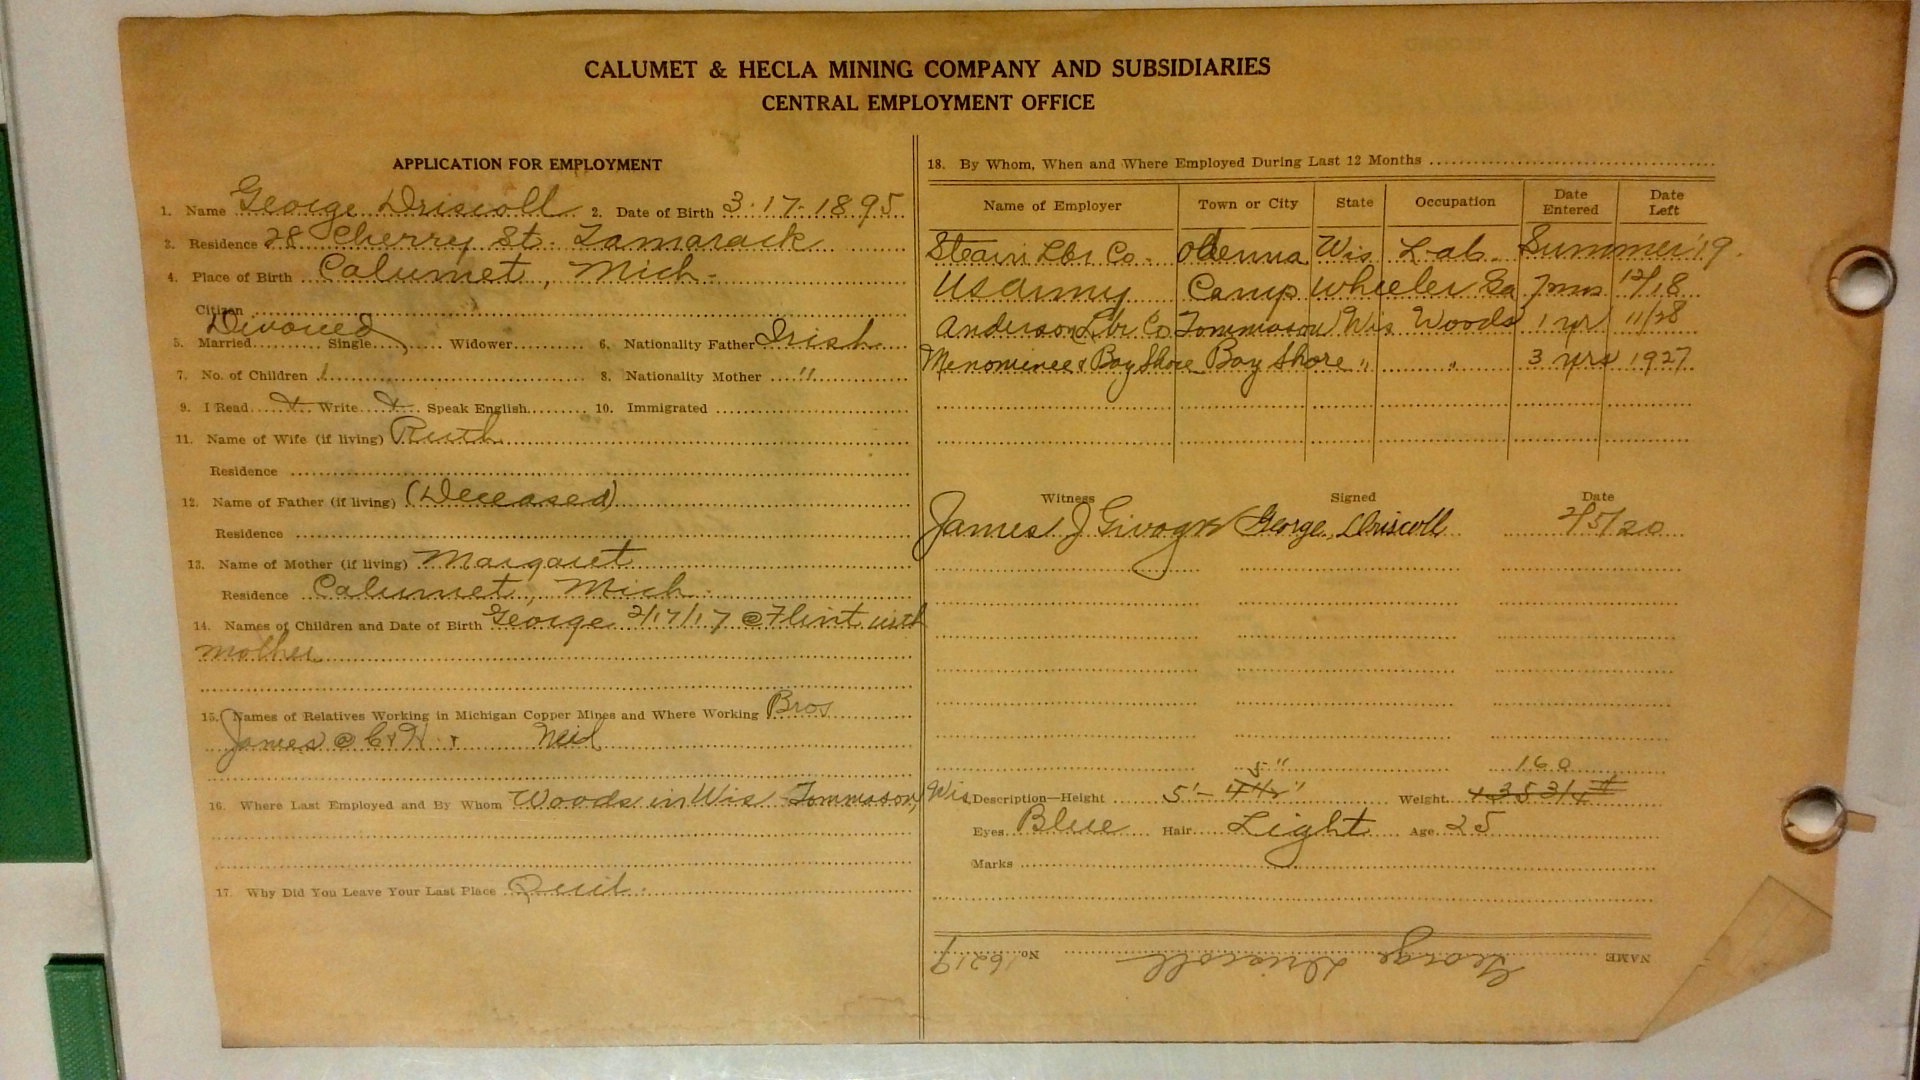 CALUMET & HECLA MINING COMPANY AND SUBSIDIARIES
CENTRAL EMPLOYMENT OFFICE
APPLICATION FOR EMPLOYMENT
1. Name George Driscoll 2. Date of Birth 3-17-1895
3. Residence 28 Cherry St. Tamarack
4. Place of Birth Calumet, Mich.
Citizen
Divorced
5. Married Single Widower 6. Nationality Father Irish
7. No. of Children 1 8. Nationality Mother "
9. I Read X Write X Speak English 10. Immigrated
11. Name of Wife (if living) Ruth
Residence
12. Name of Father (if living) (Deceased)
Residence
13. Name of Mother (if living) Margaret
Residence Calumet, Mich.
14. Names of Children and Date of Birth George 2/17/17 @ Flint with
mother
15. Names of Relatives Working in Michigan Copper Mines and Where Working Bros
James @ C & H & Neil
16. Where Last Employed and By Whom Woods in Wis Tommason, Wis
17. Why Did You Leave Your Last Place Quit.
18. By Whom, When and Where Employed During Last 12 Months
Name of Employer Town or City State Occupation Date Entered Date Left
Lbr Co. Wis Lab. Summer '19.
US Army Camp Wheeler Ga 7 mos 12/18
Anderson Lbr Co Tommason Wis Woods 1 yr 11/28
Menominee & Bay Shore Bay Shore " " 3 yrs 1927
Witness Signed Date
James J George Driscoll 2/5/20
5" 160
Description—Height 5'- Weight
Eyes Blue Hair Light Age 25
Marks
NAME George Driscoll No. 16219